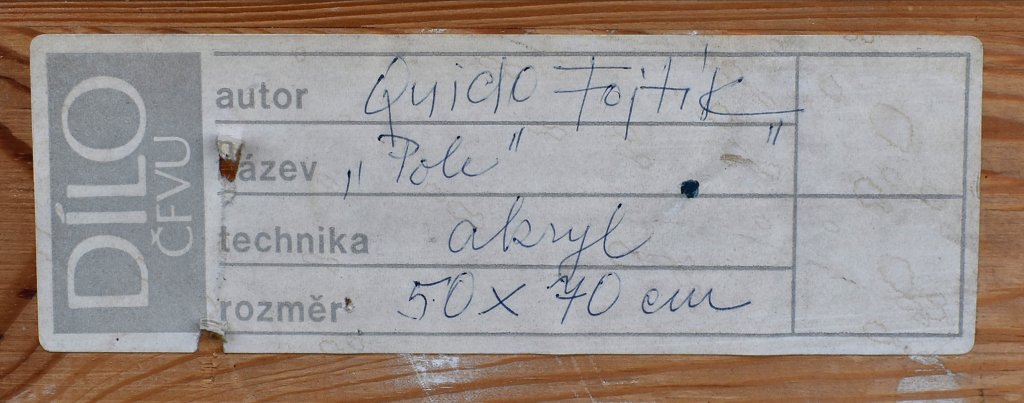 DÍLO
ČFVU
autor Quido Fojtík
název „Pole" "
technika akryl
rozměr 50 x 70 cm